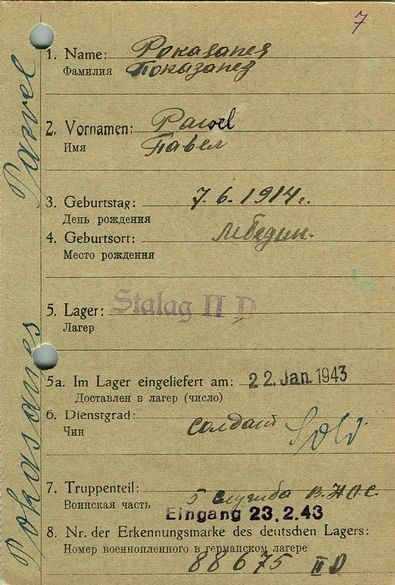 7
1. Name: Pokasanez
Фамилия Показанез
2. Vornamen: Pawel
Имя Павел
3. Geburtstag: 7.6.1914г.
День рождения
4. Geburtsort: Лебедин.
Место рождения
5. Lager: Stalag II D
Лагер
5a. Im Lager eingeliefert am: 22. Jan. 1943
Доставлен в лагер (число)
6. Dienstgrad: солдат Sold.
Чин
7. Truppenteil: 5 служба В.Н.О.С.
Воинская часть Eingang 23.2.43
8. Nr. der Erkennungsmarke des deutschen Lagers:
Номер военнопленного в германском лагере
88675 II D
Pokasanes Pawel